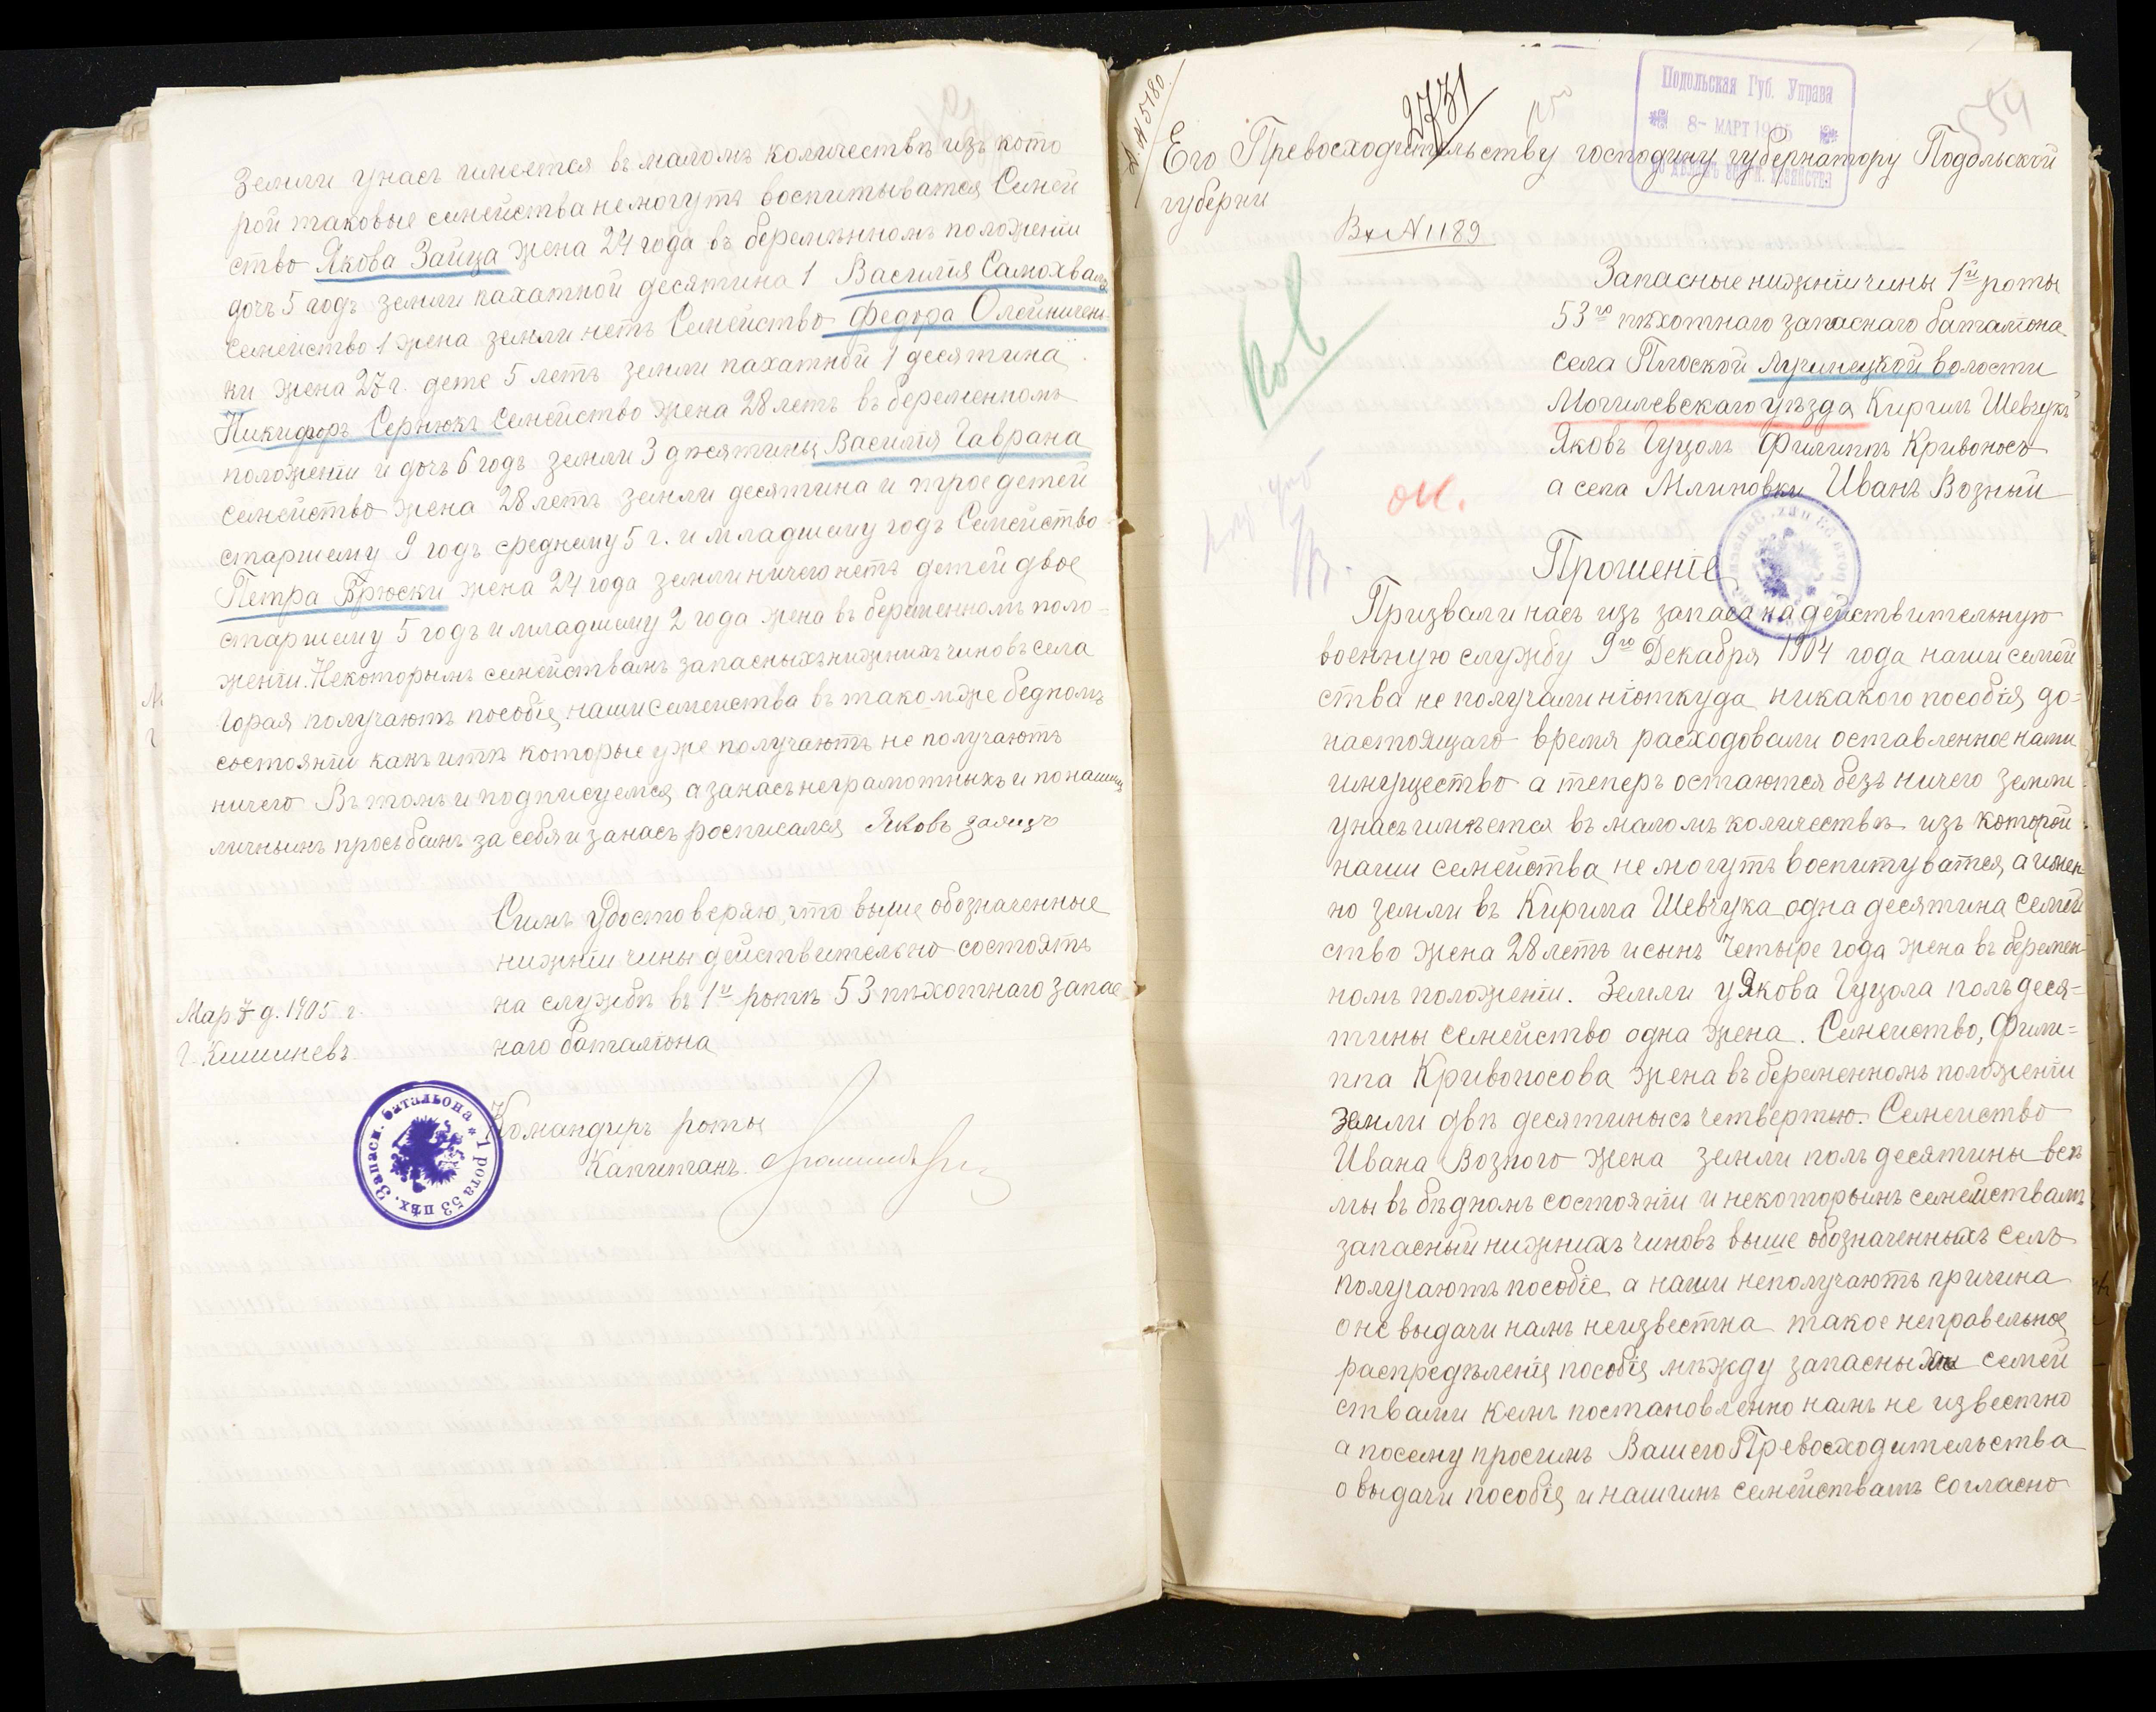 Земли унасъ имеется въ маломъ количествѣ изъ кото
рой таковые семейства немогутъ воспитыватся Семей
ство Якова Зайца жена 24 года въ беремѣнномъ положеніи
дочъ 5 годъ земли пахатной десятина 1 Василія Самохвала
семейство 1 жена земли нетъ Семейство Федора Олейничен
ки жена 27 г. дете 5 летъ земли пахатной 1 десятина.
Никифоръ Сернюкъ Семейство жена 28 летъ въ беременномъ
положеніи и дочъ 6 годъ земли 3 десятины Василія Гаврана
семейство жена 28 летъ земли десятина и трое детей
старшему 9 годъ среднему 5 г. и младшему годъ Семейство
Петра Брюски жена 24 года земли ничего нетъ детей двое
старшему 5 годъ и младшему 2 года жена въ беременномъ поло-
женіи. Некоторымъ семействамъ запасныхъ нижнихъ чиновъ села
Горая получаютъ пособіе, наши семейства въ такомже бедномъ
состояніи какъ итѣ которые уже получаютъ не получаютъ
ничего Въ томъ и подписуемся, а занасъ неграмотныхъ и по нашим
личнымъ просьбамъ за себя и занасъ росписался Яковъ Заяцъ
Симъ удостоверяю, что выше обозначенные
нижніи чины действительно состоятъ
на службѣ въ 1й ротѣ 53 пѣхотнаго запас
наго баталіона
Мар 7 д. 1905 г.
Г. Кишиневъ.
Командиръ роты
Капитанъ
1 рота 53 пѣх. Запасн. баталъона
Д. № 5180.
2731
Подольская Губ. Управа
8- МАРТ 1905
554
Его Превосходительству господину губернатору Подольской
губерніи
Вх № 1189
Запасные нижніи чины 1й роты
53го пѣхотнаго запаснаго баталіона
села Плоской Лучинецкой волости
Могилевскаго уѣзда Кирилъ Шевчукъ
Яковъ Гуцолъ Филиппъ Кривоносъ
а села Млиновки Иванъ Возный
Прошеніе
Призвали насъ изъ запаса на действительную
военную службу 9го Декабря 1904 года наши семей
ства не получали ніоткуда никакого пособія, до-
настоящаго время расходовали оставленное нами
имущество а теперъ остаются безъ ничего земли
унасъ имѣется въ маломъ количествѣ изъ которой
наши семейства не могутъ воспитуватся, а имен
но земли въ Кирила Шевчука одна десятина семей
ство жена 28 летъ и сынъ четыре года жена въ беремен
номъ положеніи. Земли у Якова Гуцола полъ деся-
тины семейство одна жена. Семейство, Фили-
ппа Кривоносова жена въ беременномъ положеніи
Земли двѣ десятины съ четвертью. Семейство
Ивана Возного жена земли полъ десятины всѣ
мы въ бѣдномъ состояніи и некоторымъ семействамъ
запасный нижнихъ чиновъ выше обозначенныхъ селъ
получаютъ пособіе а наши неполучаютъ причина
о не выдачи намъ неизвестна такое неправельное
распредѣленіе пособія мѣжду запасных семей
ствами кемъ постановленно намъ не известно
а посему просимъ Вашего Превосходительства
о выдачи пособія и нашимъ семействамъ согласно